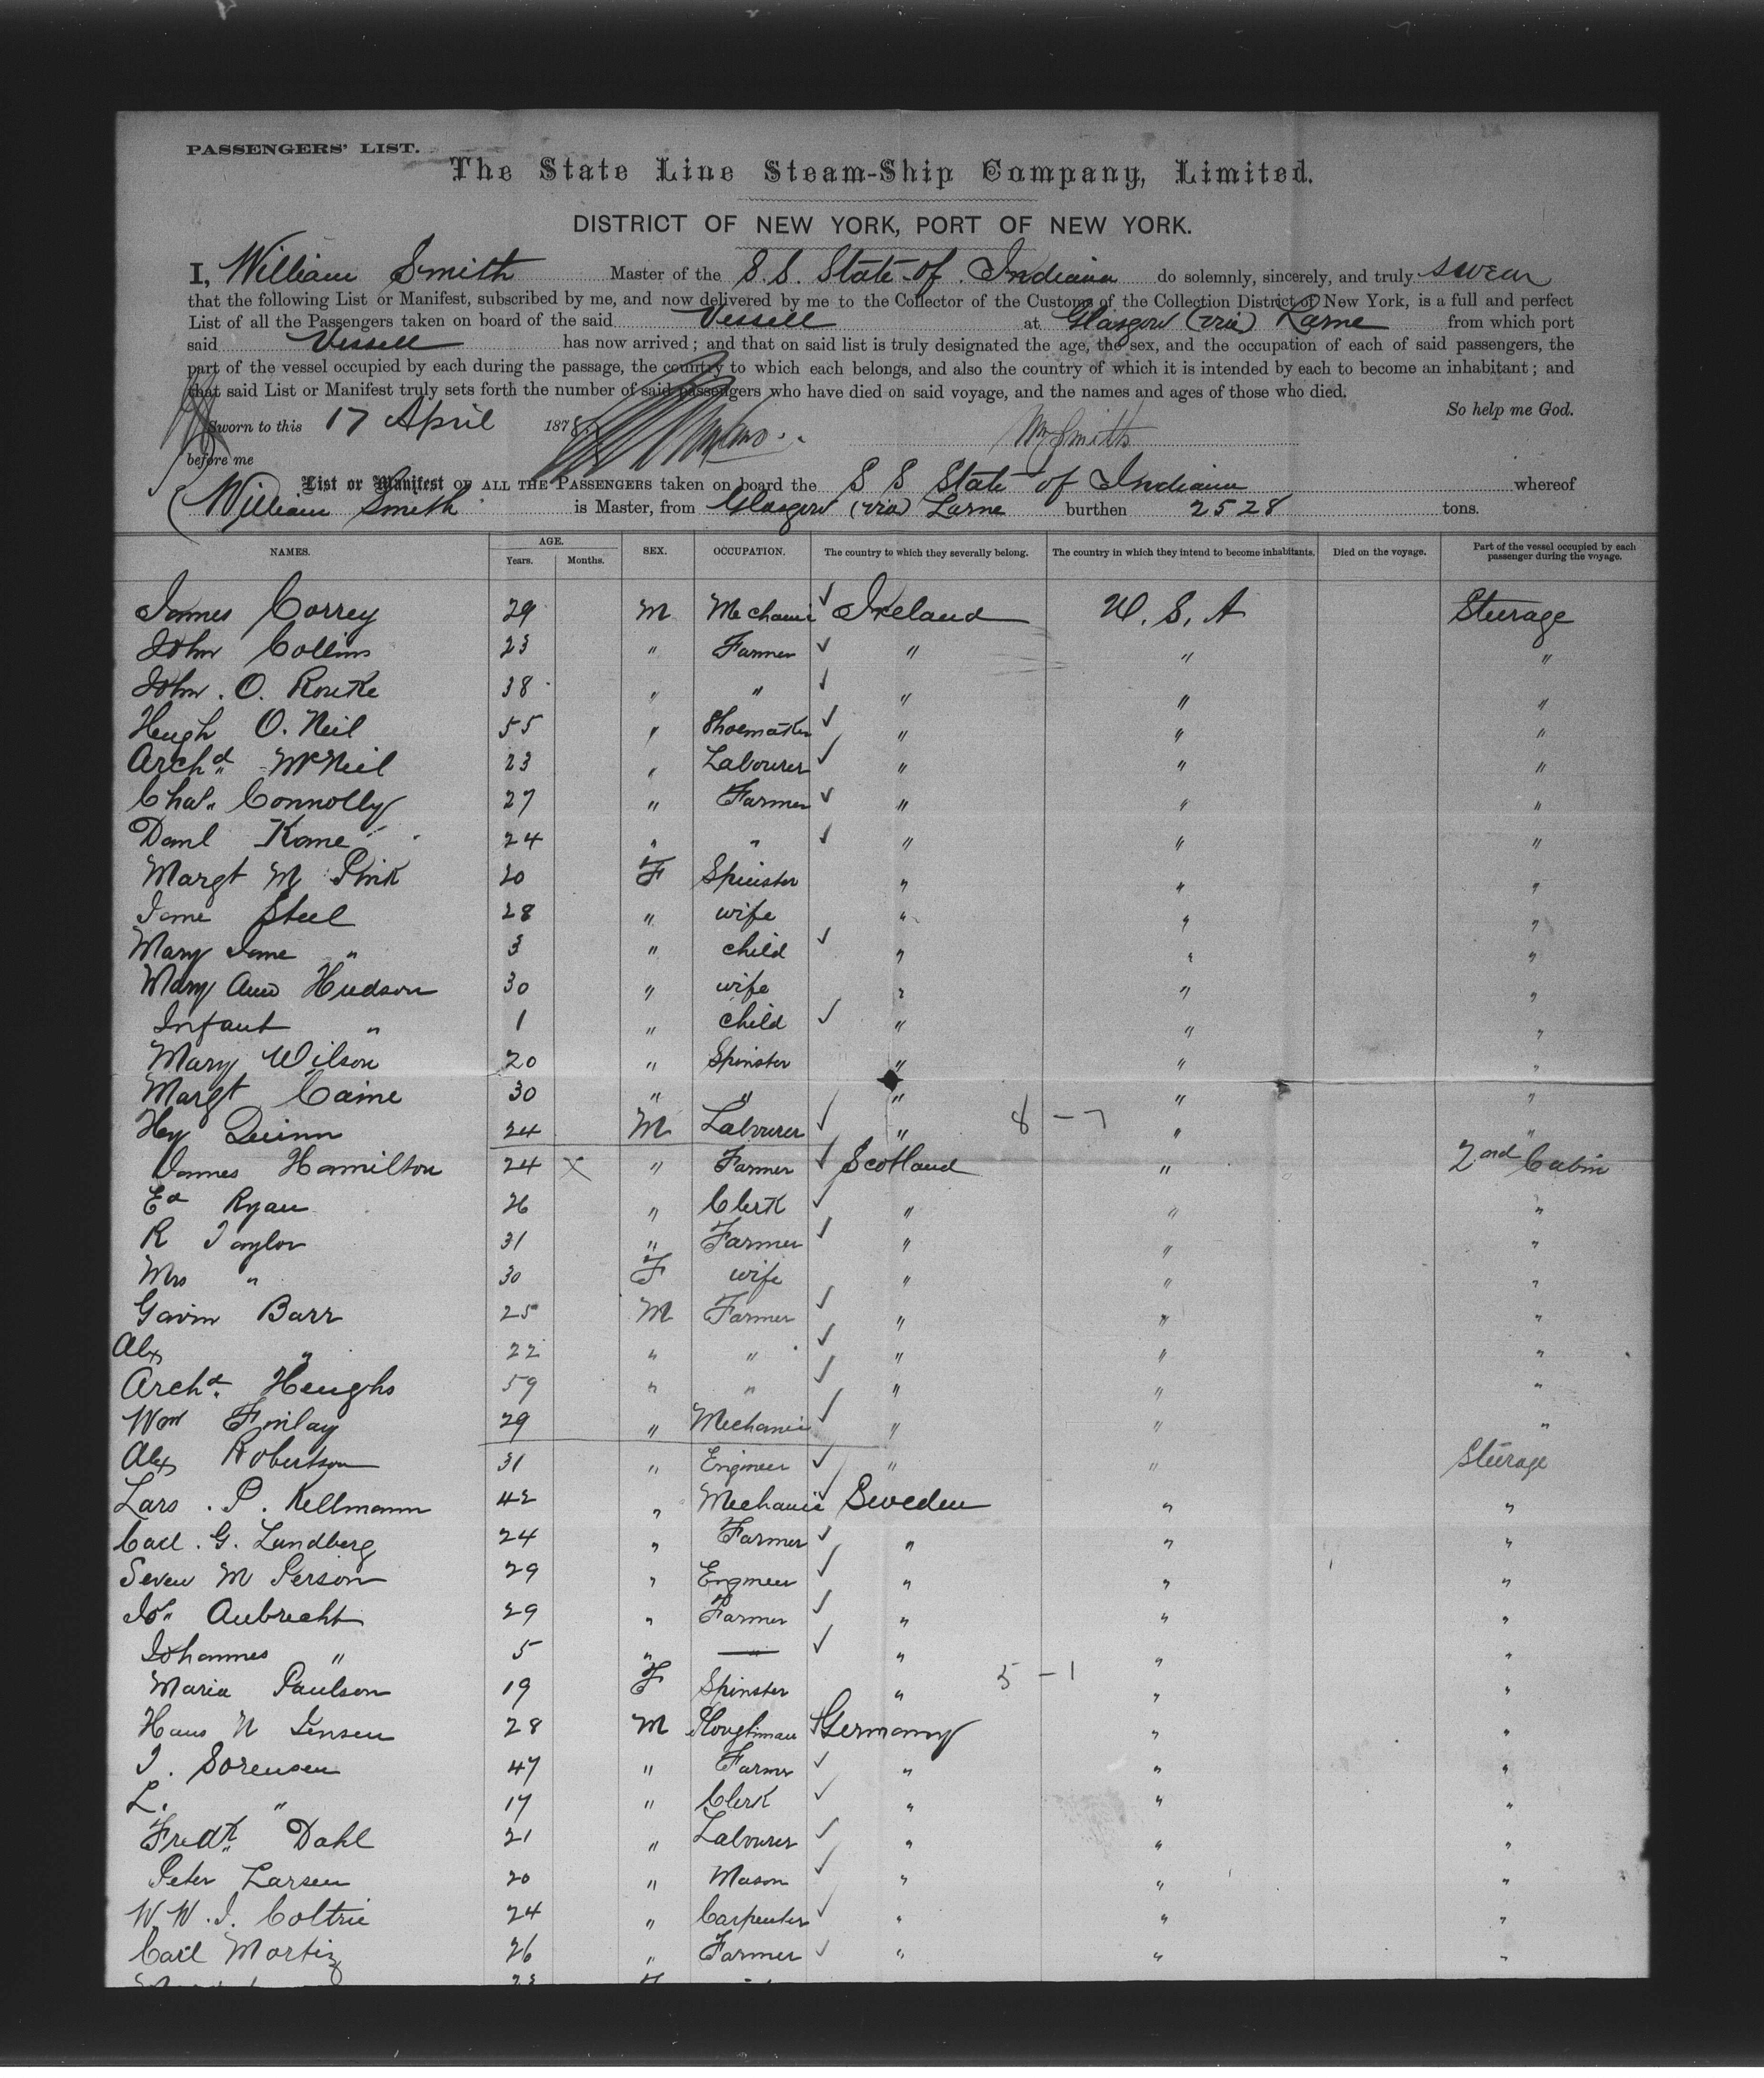 PASSENGERS' LIST.
The State Line Steam-Ship Company, Limited.
DISTRICT OF NEW YORK, PORT OF NEW YORK.
I, William Smith Master of the S.S. State of Indiana do solemnly, sincerely, and truly swear
that the following List or Manifest, subscribed by me, and now delivered by me to the Collector of the Customs of the Collection District of New York, is a full and perfect
List of all the Passengers taken on board of the said Vessell at Glasgow (via) Larne from which port
said Vessell has now arrived; and that on said list is truly designated the age, the sex, and the occupation of each of said passengers, the
part of the vessel occupied by each during the passage, the country to which each belongs, and also the country of which it is intended by each to become an inhabitant; and
that said List or Manifest truly sets forth the number of said passengers who have died on said voyage, and the names and ages of those who died.
So help me God.
Sworn to this 17 April 1878 Wm Smith
before me
List or Manifest OF ALL THE PASSENGERS taken on board the S S State of Indiana whereof
William Smith is Master, from Glasgow (via) Larne burthen 2528 tons.
NAMES. AGE. Years. Months. SEX. OCCUPATION. The country to which they severally belong. The country in which they intend to become inhabitants. Died on the voyage. Part of the vessel occupied by each passenger during the voyage.
James Correy 29 M Mechanic Ireland U.S.A Steerage
John Collins 23 " Farmer " " "
John. O. Rourke 38 " " " " "
Hugh O. Neil 55 " Shoemaker " " "
Archd McNeil 23 " Labourer " " "
Chas. Connolly 27 " Farmer " " "
Danl Kane 24 " " " " "
Margt M Pink 20 F Spinster " " "
Jane Steel 28 " wife " " "
Mary Jane " 3 " child " " "
Mary Ann Hudson 30 " wife " " "
Infant " 1 " child " " "
Mary Wilson 20 " Spinster " " "
Margt Caine 30 " " " " "
Hy Quinn 24 M Labourer " 8 - 7 " "
James Hamilton 24 X " Farmer Scotland " 2nd Cabin
Ed Ryan 26 " Clerk " " "
R Taylor 31 " Farmer " " "
Mrs " 30 F wife " " "
Gavin Barr 25 M Farmer " " "
Alex " 22 " " " " "
Archd. Heughs 59 " " " " "
Wm Finlay 29 " Mechanic " " "
Alex Robertson 31 " Engineer " " Steerage
Lars. P. Kellmann 42 " Mechanic Sweden " "
Carl. G. Lundberg 24 " Farmer " " "
Seven M Person 29 " Engineer " " "
Jos. Aubrecht 29 " Farmer " " "
Johannes " 5 " — " " "
Maria Paulson 19 F Spinster " 5 - 1 " "
Hans N Jensen 28 M Ploughman Germany " "
J. Sorensen 47 " Farmer " " "
L. " 17 " Clerk " " "
Fredk. Dahl 21 " Labourer " " "
Peter Larsen 20 " Mason " " "
W. W. J. Coltrie 24 " Carpenter " " "
Carl Mortiz 26 " Farmer " " "